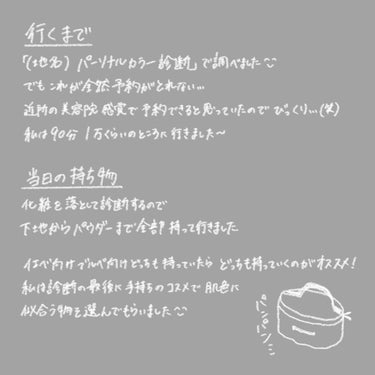 行くまで
「(地名) パーソナルカラー診断」で調べました
でもこれが全然予約がとれない...
近所の美容院感覚で予約できると思っていたのでびっくり...(笑)
私は90分 1万くらいのところに行きました〜
当日の持ち物
化粧を落として診断するので
下地からパウダーまで全部持って行きました
イエベ向けブルベ向けどっちも持っていたらどっちも持っていくのがオススメ!
私は診断の最後に手持ちのコスメで肌色に
似合う物を選んでもらいました